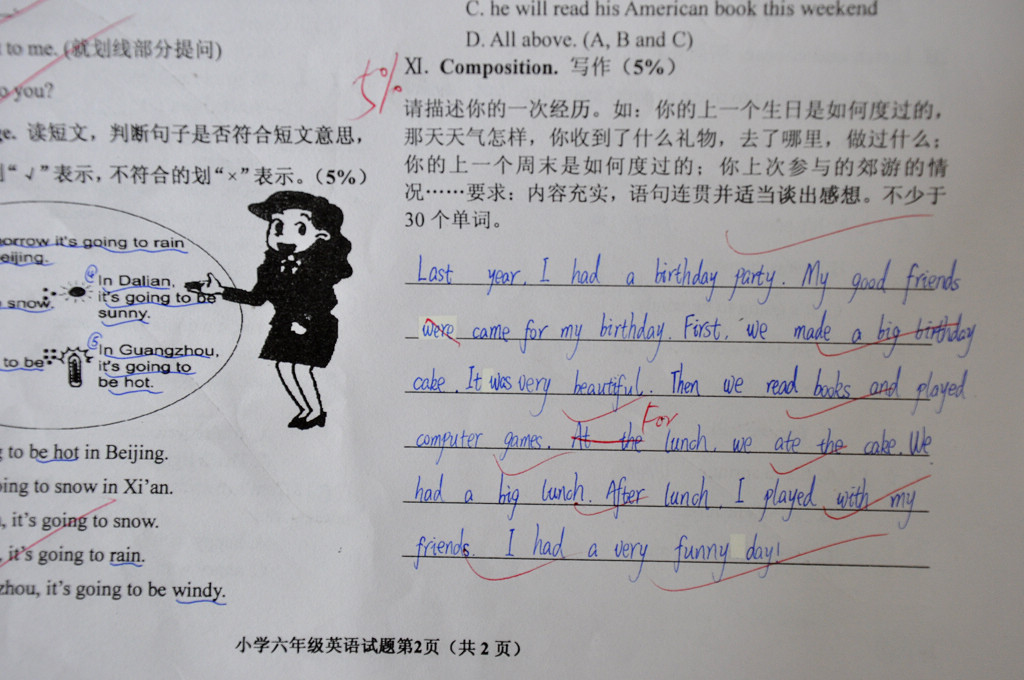 to me. (就划线部分提问)
you?
读短文，判断句子是否符合短文意思，
“√”表示，不符合的划“×”表示。（5%）
it's going to rain
snow.
④
In Dalian,
it's going to be
sunny.
to be
⑤
In Guangzhou,
it's going to
be hot.
to be hot in Beijing.
to snow in Xi'an.
, it's going to snow.
, it's going to rain.
, it's going to be windy.
C. he will read his American book this weekend
D. All above. (A, B and C)
5%
XI. Composition. 写作（5%）
请描述你的一次经历。如：你的上一个生日是如何度过的，
那天天气怎样，你收到了什么礼物，去了哪里，做过什么；
你的上一个周末是如何度过的；你上次参与的郊游的情
况……要求：内容充实，语句连贯并适当谈出感想。不少于
30个单词。
Last year, I had a birthday party. My good friends
were came for my birthday. First, we made a big birthday
cake. It was very beautiful. Then we read books and played
computer games. At the For lunch, we ate the cake. We
had a big lunch. After lunch, I played with my
friends. I had a very funny day!
小学六年级英语试题第2页（共 2 页）